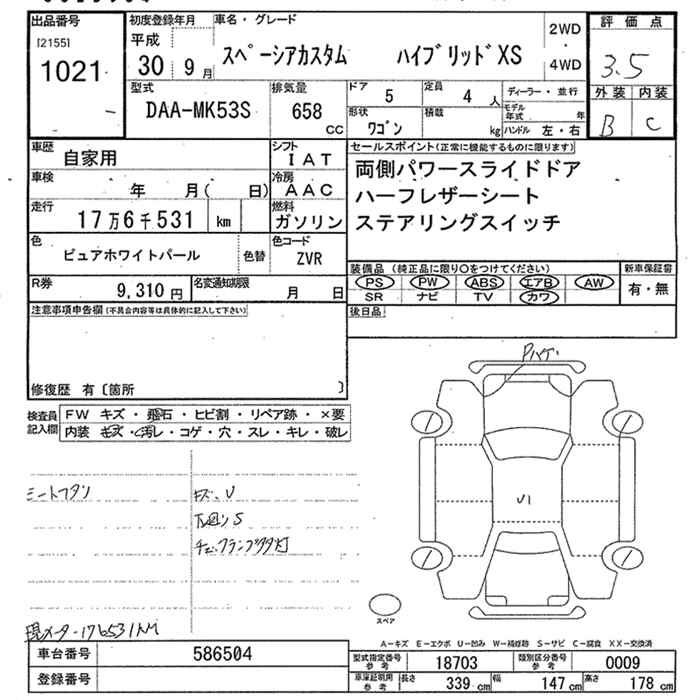 出品番号 初度登録年月 車名・グレード 2WD ・ 4WD 評価点
[2155] 1021 平成 30 9月 スペーシアカスタム ハイブリッドXS 3.5
型式 DAA-MK53S 排気量 658 CC ドア 5 定員 4 人 ディーラー・並行 外装 内装
形状 ワゴン 積載 kg モデル年式 年 ハンドル 左・右 B C
車歴 自家用 シフト IAT セールスポイント(正常に機能するものに限ります)
両側パワースライドドア
車検 年 月( 日) 冷房 AAC ハーフレザーシート
走行 17万6千531 km 燃料 ガソリン ステアリングスイッチ
色 ピュアホワイトパール 色替 色コード ZVR
装備品 (純正品に限り○をつけてください) 新車保証書
R券 9,310円 名変通知期限 月 日 PS PW ABS エアB AW 有・無
SR ナビ TV カワ
注意事項申告欄(不具合内容等は具体的に記入して下さい) 後日品
修復歴 有〔箇所 〕
検査員記入欄 FW キズ・飛石・ヒビ割・リペア跡・×要
内装 キズ・汚レ・コゲ・穴・スレ・キレ・破レ
Pハゲ
シートスタン キズ、U
U1
下回りS
チェックランプ多灯
スペア
現メーター176531KM
A-キズ E-エクボ U-凹み W-補修跡 S-サビ C-腐食 XX-交換済
車台番号 586504 型式指定番号 参考 18703 類別区分番号 参考 0009
登録番号 車庫証明用 参考 長さ 339 cm 幅 147 cm 高さ 178 cm